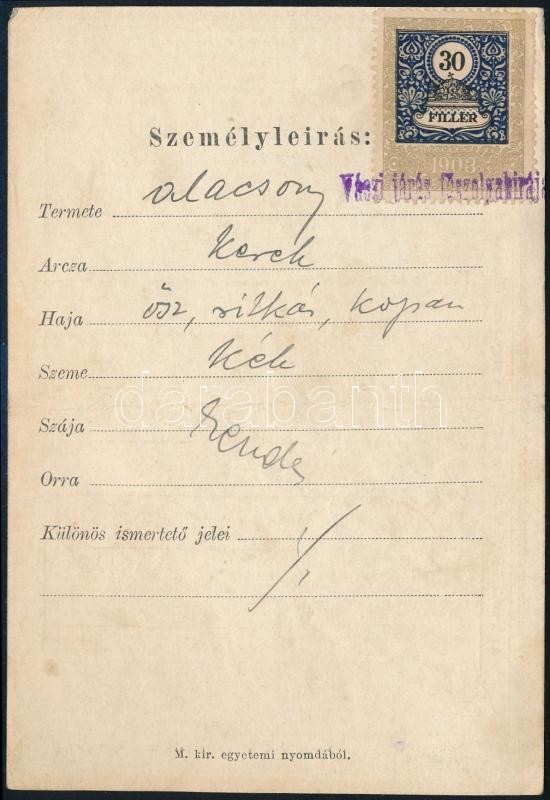 30
FILLÉR
1903
Váczi járás főszolgabírája
Személyleirás:
Termete alacsony
Arcza kerek
Haja ősz, ritkás, kopasz
Szeme kék
Szája rendes
Orra
Különös ismertető jelei ./.
darabanth
M. kir. egyetemi nyomdából.